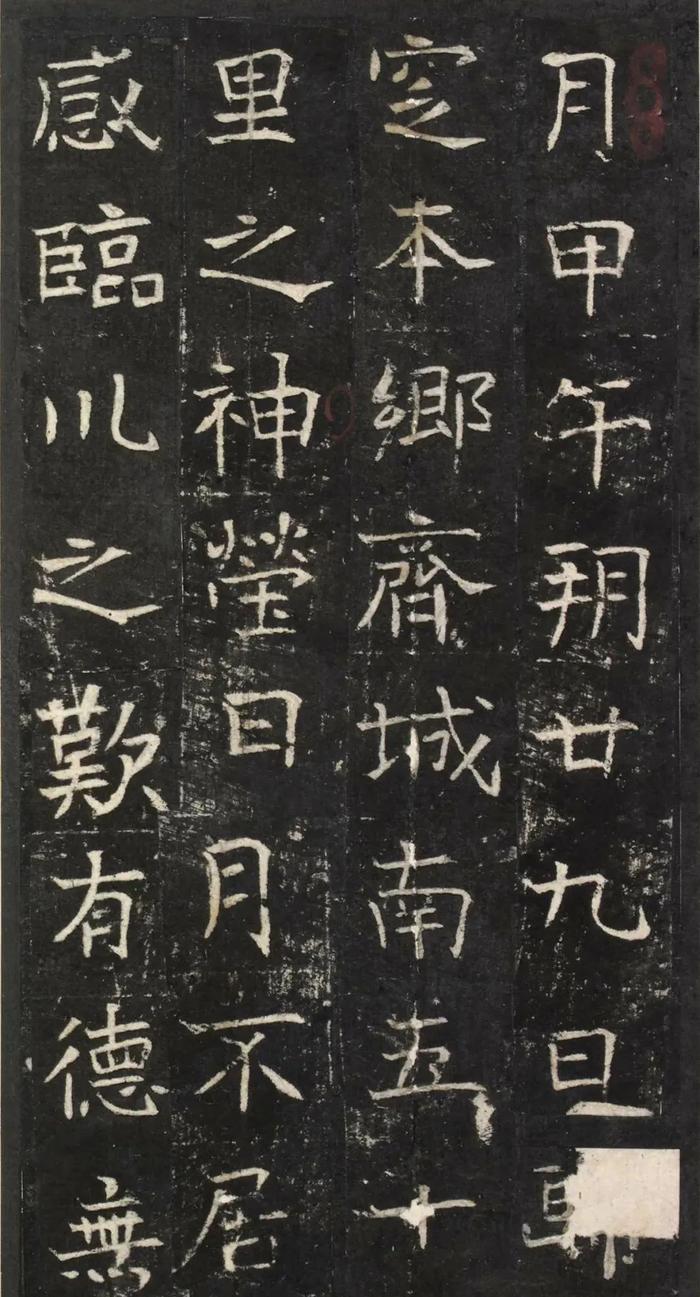 月甲午朔廿九旦
窆本鄉齊城南五十
里之神塋日月不居
感臨川之歎有德無